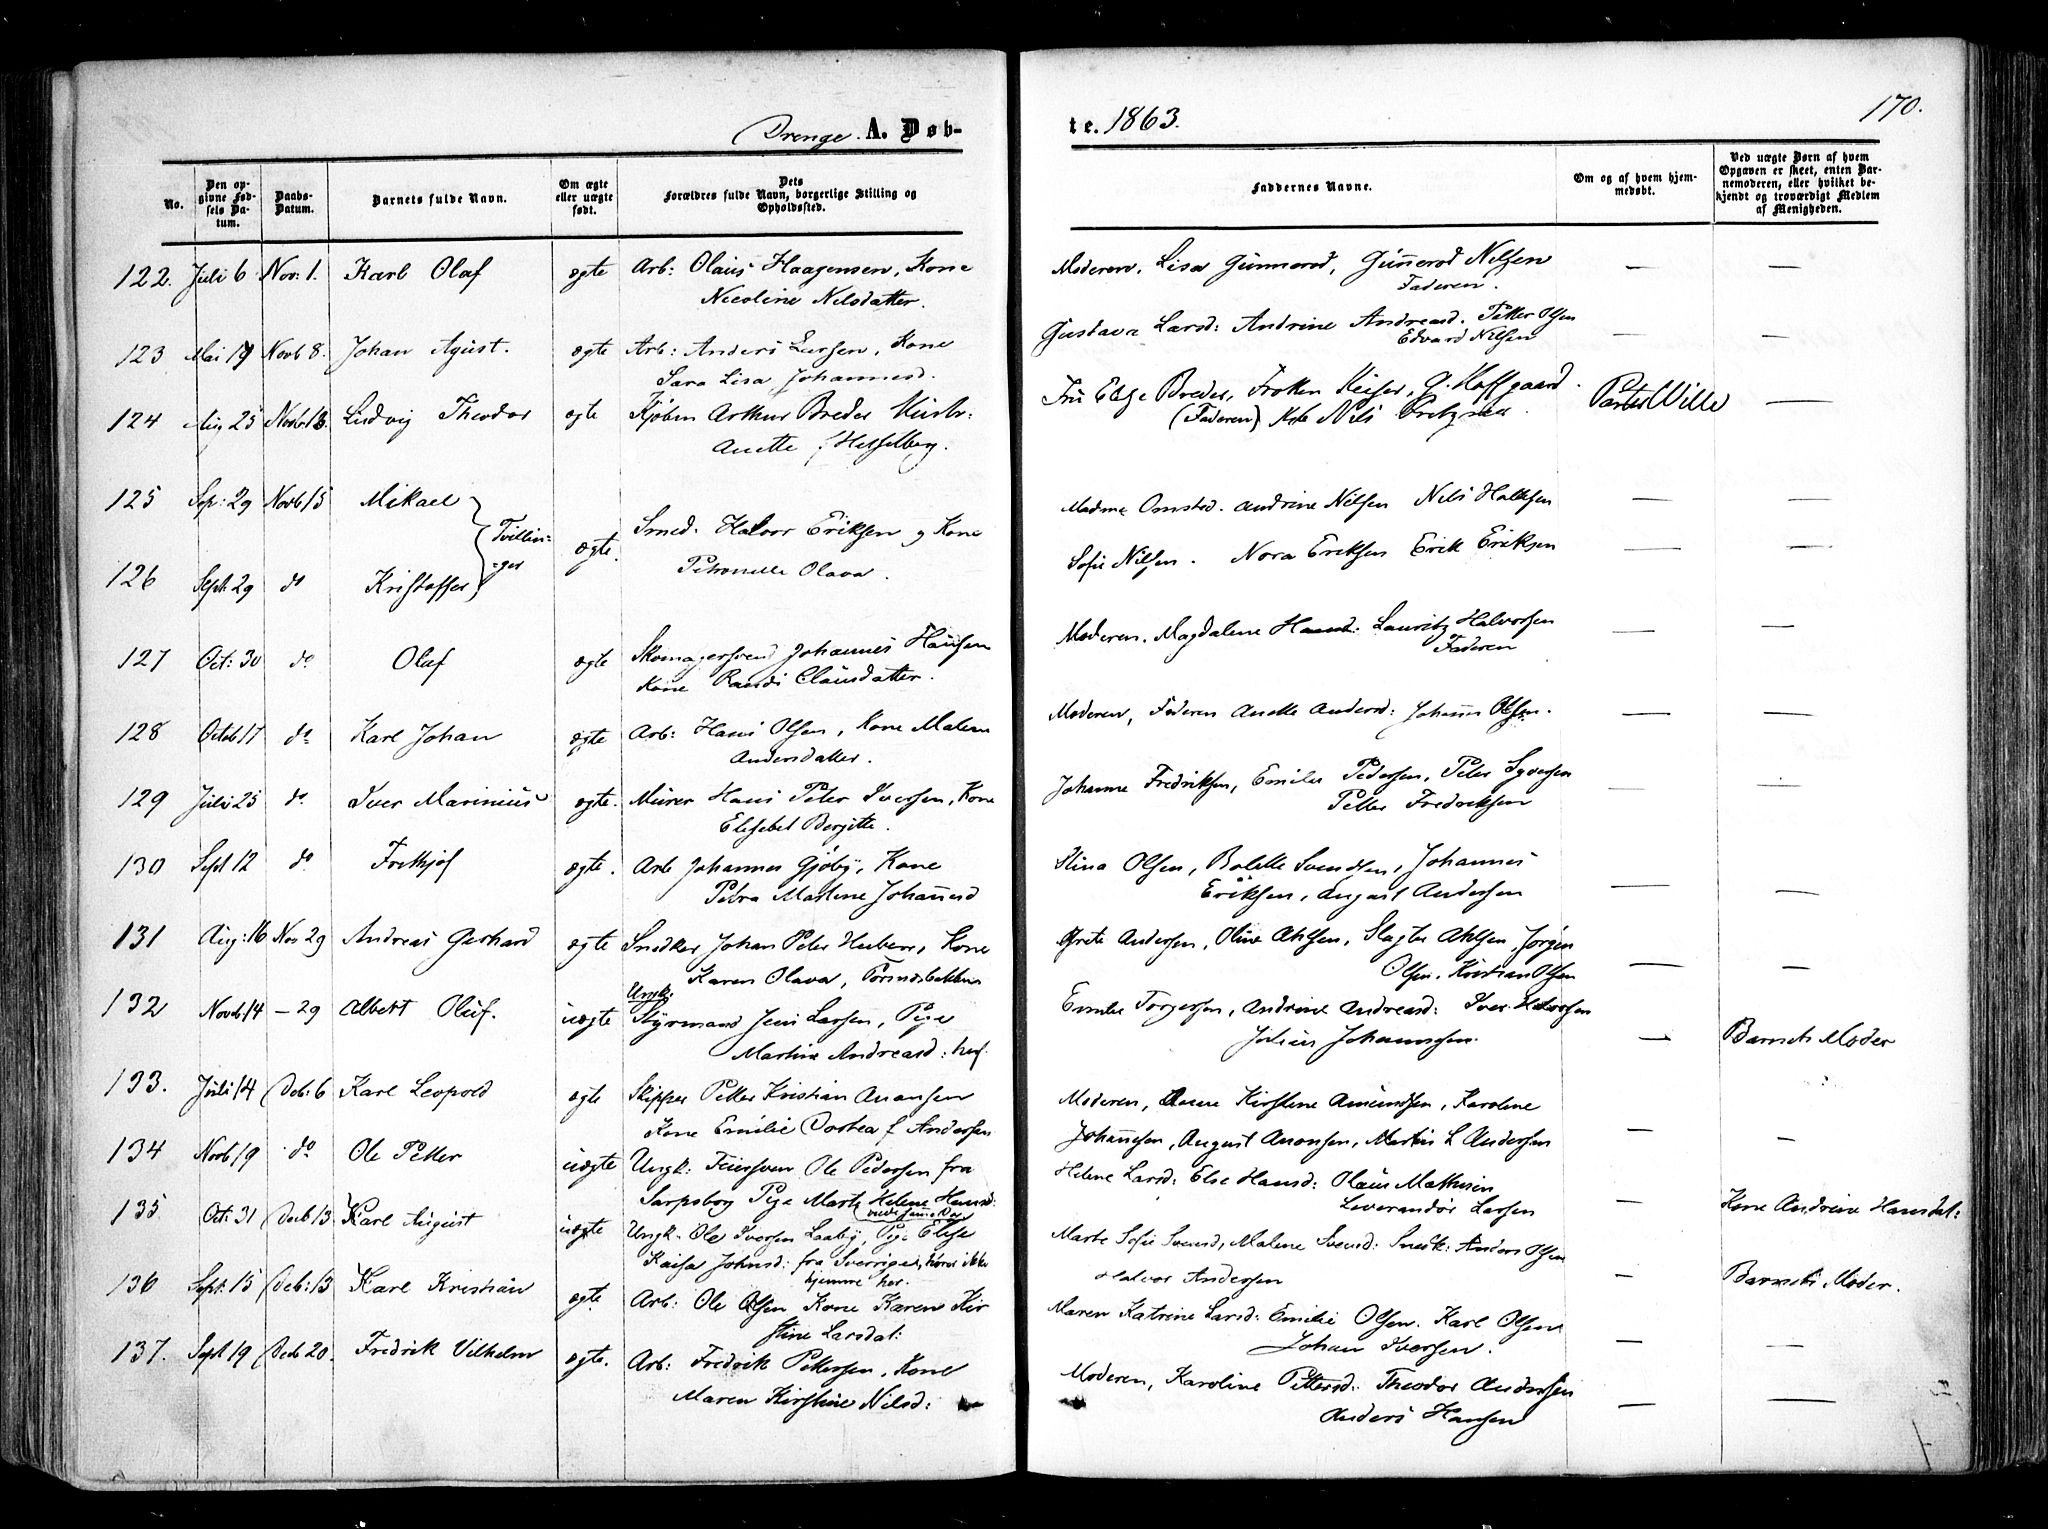 Drenge. A. Døb-
No.
Den op-
givne Fød-
sels Da-
tum.
Daabs-
Datum.
Barnets fulde Navn.
Om ægte
eller uægte
født.
Dets
Forældres fulde Navn, borgerlige Stilling og
Opholdssted.
122. Juli 6 Nov: 1. Karl Olaf ægte Arb: Olaus Haagensen, Kone
Nicoline Nilsdatter.
123 Mai 19 Novb 8. Johan Agust. ægte Arb: Anders Larsen, Kone
Sara Lisa Johannesd.
124 Aug 25 Novb 13. Ludvig Theodor ægte Kjøbm Arthur Bredes Hustr.
Anette f Hesselberg.
125 Sep: 29 Novb 15 Mikael
Tvillin=
=ger
ægte. Smed. Halvor Eriksen og Kone
Petronelle Olava.
126 Sept: 29 do Kristoffer
127 Oct: 30 do Olaf ægte Skomagersvend Johannes Hansen
Kone Randi Clausdatter.
128 Octob 17 do Karl Johan ægte Arb: Hans Olsen, Kone Malene
Andersdatter.
129 Juli 25 do Iver Marinius ægte. Murer Hans Peter Iversen, Kone
Elisebet Bergitte.
130 Sept 12 do Frithjof ægte. Arb Johannes Gjøby, Kone
Petra Matlene Johannesd
131 Aug: 16 Nov 29 Andreas Gerhard ægte Snedker Johan Peter Hubern, Kone
Karen Olava,
132 Novb 14 – 29 Albert Oluf. uægte Ungk: Styrmand Jens Larsen, Pige
Martine Andreasd: her.
133. Juli 14 Deb: 6 Karl Leopold ægte Skipper Petter Kristian Aronsen
Kone Emilie Dortea f Andersen
134 Novb 19 do Ole Petter uægte Ungk: Feiersven Ole Pedersen fra
Sarpsborg Pige Marte Helene Hansd:
135 Oct: 31 Decb 13 Karl August uægte Ungk. Ole Iversen Laaby, Pige Elise
Kaisa Johnsd: fra Sverrige, hører ikke
hjemme her.
136 Sept: 15 Deb: 13 Karl Kristian ægte Arb: Ole Olsen Kone Karen Kir
stine Larsdat:
137. Sept 19 Deb 20. Fredrik Vilhelm ægte. Arb: Fredrik Pettersen, Kone
Maren Kirstine Nilsd:
te. 1863.
170.
Faddernes Navne.
Om og af hvem hjem-
medøbt.
Ved uægte Børn af hvem
Opgaven er skeet, enten Bar-
nemoderen, eller hvilket be-
kjendt og troværdigt Medlem
af Menigheden.
Moderen. Lisa Gunnerød, Gunnerød Nilsen — —
Faderen.
Gustava Larsd: Andrine Andreasd. Petter Olsen — —
Edvard Nilsen
Fru Elise Bredes, Frøken Keiser, G. Hoffgaard. Pastor Wille —
(Faderen) Nils Pretzman.
Madme Omsted. Andrine Nilsen Nils Halvsen — —
Sofie Nilsen. Nora Eriksen Erik Eriksen — —
Moderen. Magdalene Hansd: Lauritz Halvorsen — —
Faderen
Moderen, Faderen Anette Andersd: Johannes Olsen. — —
Johanne Fredriksen, Emilie Pedersen, Peter Syversen — —
Petter Fredriksen
Stina Olsen, Bolette Svendsen, Johannes
Eriksen, August Andersen — —
Grete Andersen, Oline Ahlsen, Slagter Ahlsen, Jørgen
Olsen. Kristian Olsen — —
Emilie Torgersen, Andrine Andreasd: Iver Halvorsen
Julius Johannesen. — Barnets Moder
Moderen, Kirstine Amundsen, Karoline
Johannesen, August Aronsen, Martin L Andersen — —
Helene Larsd: Else Hansd: Olaus Mathisen
Leverandør Larsen — Kone Andrine Hansdat:
Marte Sofie Svensd, Malene Svensd: Snedk: Anders Olsen
Halvor Andersen — Barnets Moder.
Maren Katrine Larsd: Emilie Olsen. Karl Olsen
Johan Iversen. — —
Moderen, Karoline Pettersd: Theodor Andersen
Anders Hansen — —